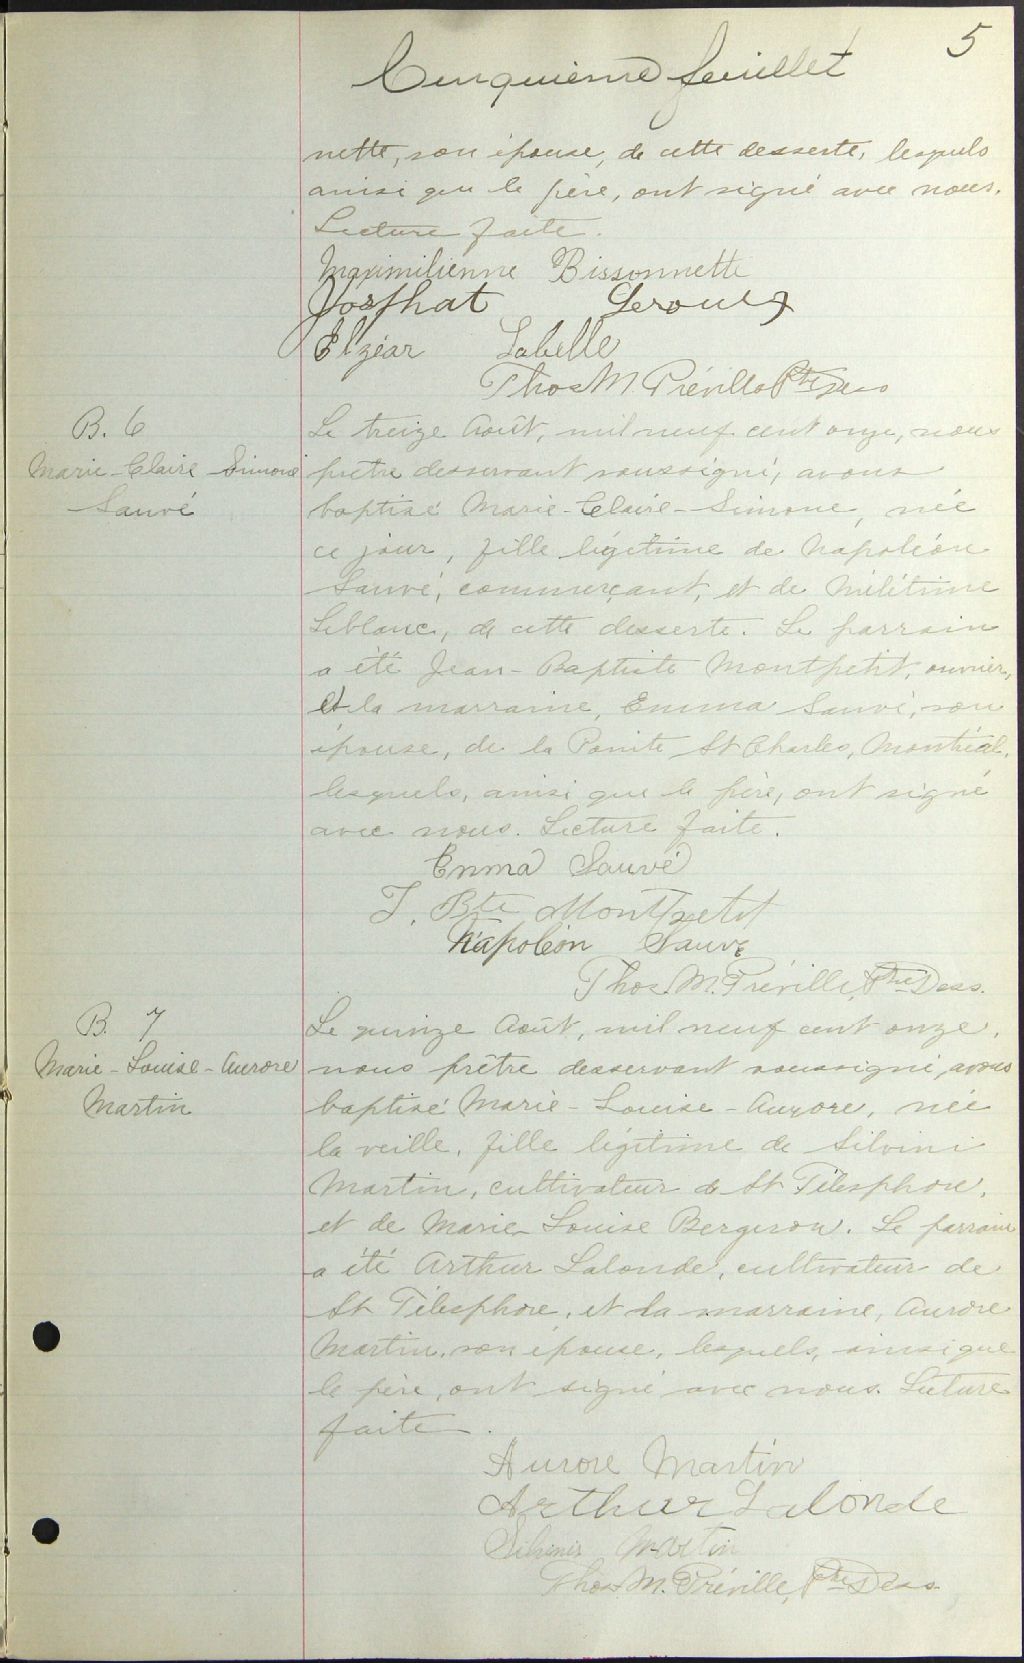 5
Cinquième feuillet
nette, son épouse, de cette desserte, lesquels
ainsi que le père, ont signé avec nous.
Lecture faite.
Maximilienne Bissonnette
Josphat Leroux
Elzéar Labelle
Thos M. Préville Ptre Dess
B. 6
Marie-Claire-Simone
Sauvé
Le treize Août, mil neuf cent onze, nous
prêtre desservant soussigné, avons
baptisé Marie-Claire-Simone, née
ce jour, fille légitime de Napoléon
Sauvé, commerçant, et de Mélitime
Leblanc, de cette desserte. Le parrain
a été Jean-Baptiste Montpetit, ouvrier,
et la marraine, Emma Sauvé, son
épouse, de la Pointe St Charles, Montréal,
lesquels, ainsi que le père, ont signé
avec nous. Lecture faite.
Emma Sauvé
J. Bte Montpetit
Napoléon Sauvé
Thos. M. Préville, Ptre Dess.
B. 7
Marie-Louise-Aurore
Martin
Le quinze Août, mil neuf cent onze,
nous prêtre desservant soussigné, avons
baptisé Marie-Louise-Aurore, née
la veille, fille légitime de Silvini
Martin, cultivateur de St Télesphore,
et de Marie-Louise Bergeron. Le parrain
a été Arthur Lalonde, cultivateur de
St Télesphore, et la marraine, Aurore
Martin, son épouse, lesquels, ainsi que
le père, ont signé avec nous. Lecture
faite.
Aurore Martin
Arthur Lalonde
Martin
Thos M. Préville, Ptre Dess.